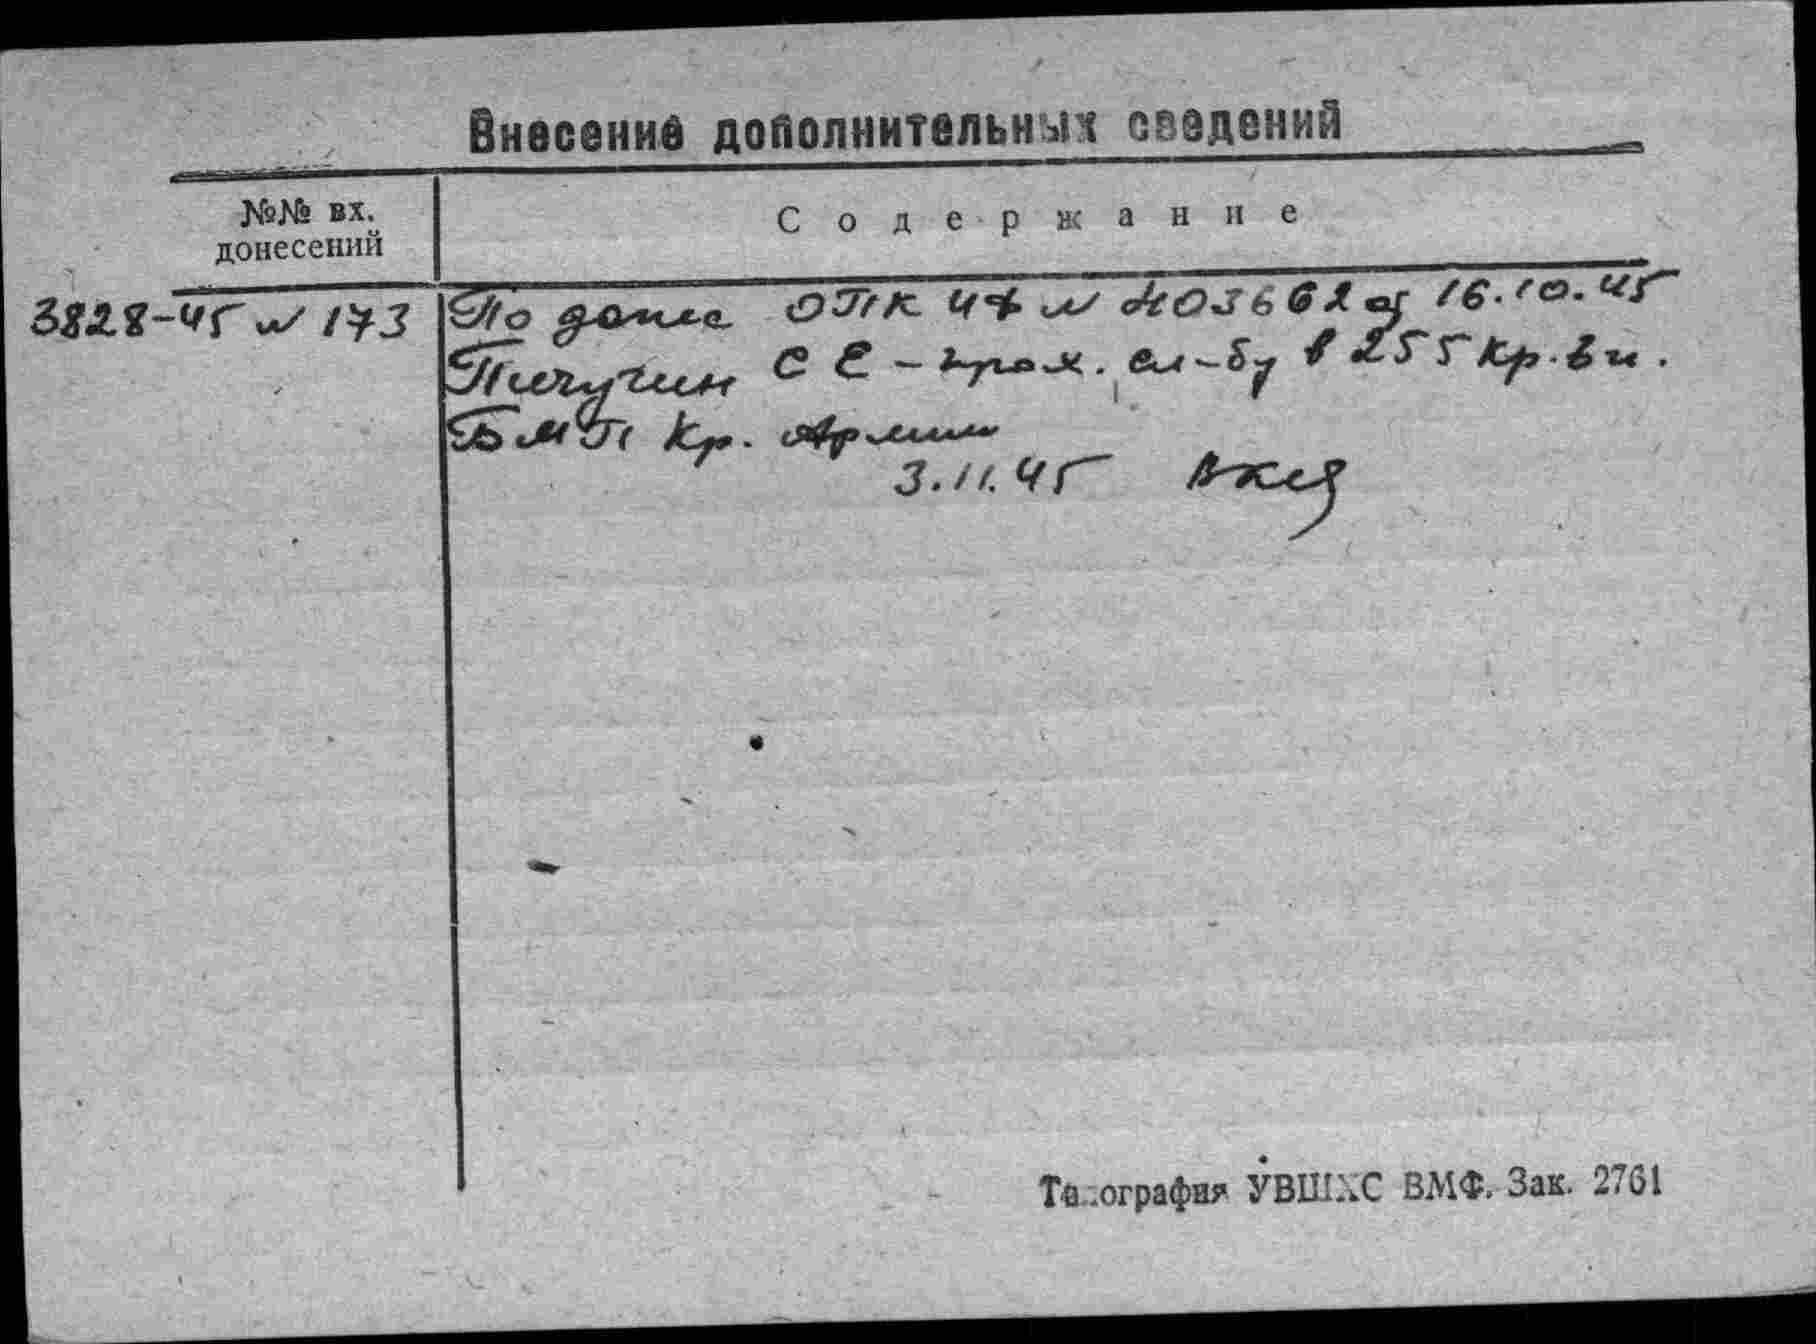 Внесение дополнительных сведений
№№ вх.
донесений
Содержание
3828-45 № 173
По донес ОПК ЧФ № 403662 от 16.10.45
Пичугин С Е - прох. сл-бу в 255 Кр. Зн.
БМП Кр. Армии
3.11.45
Типография УВШХС ВМФ. Зак. 2761